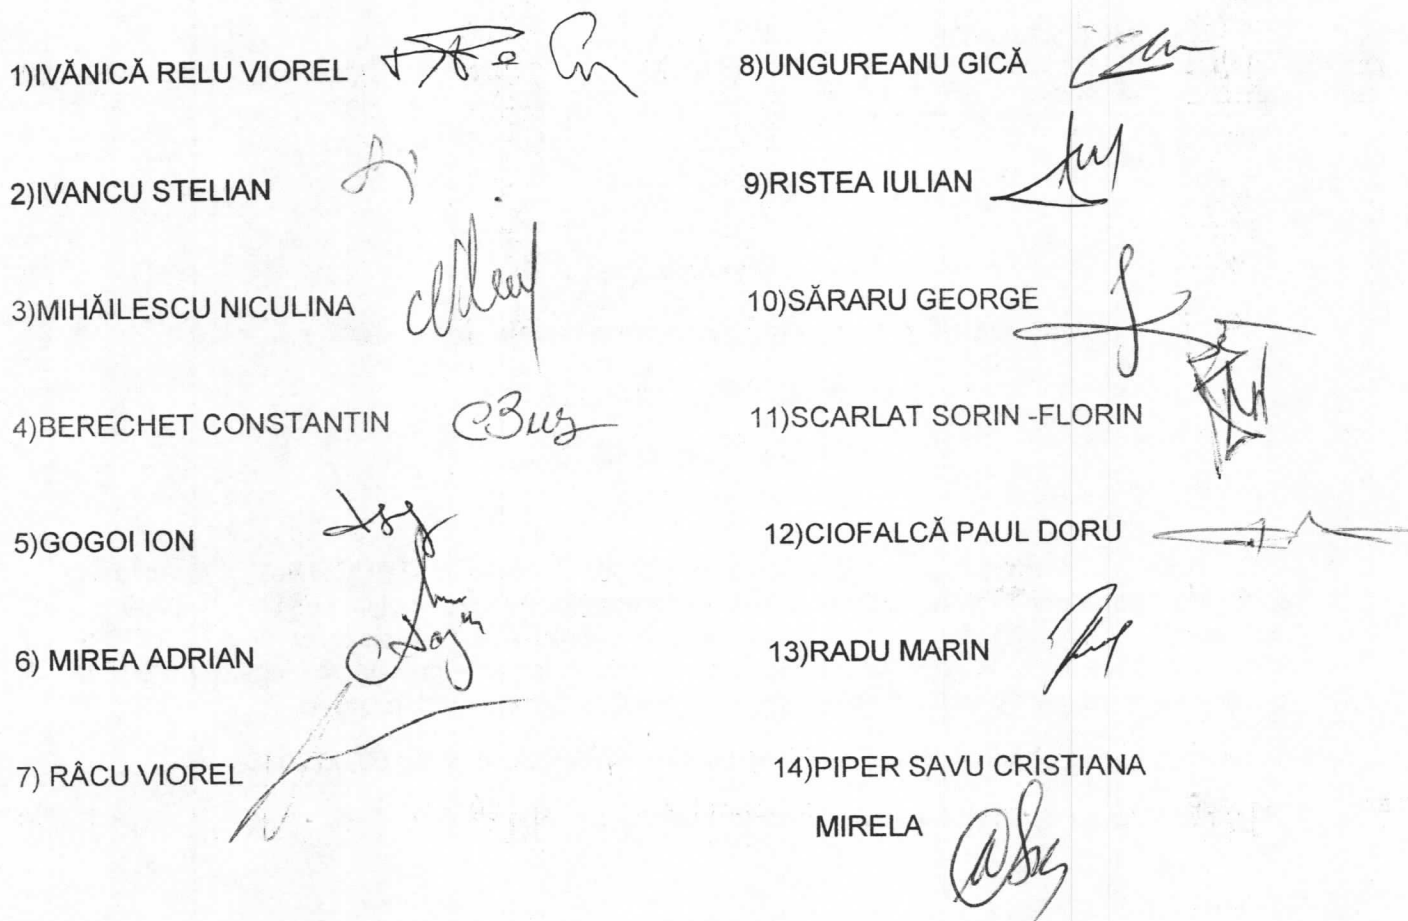 1)IVĂNICĂ RELU VIOREL
2)IVANCU STELIAN
3)MIHĂILESCU NICULINA
4)BERECHET CONSTANTIN
5)GOGOI ION
6) MIREA ADRIAN
7) RÂCU VIOREL
8)UNGUREANU GICĂ
9)RISTEA IULIAN
10)SĂRARU GEORGE
11)SCARLAT SORIN -FLORIN
12)CIOFALCĂ PAUL DORU
13)RADU MARIN
14)PIPER SAVU CRISTIANA
MIRELA